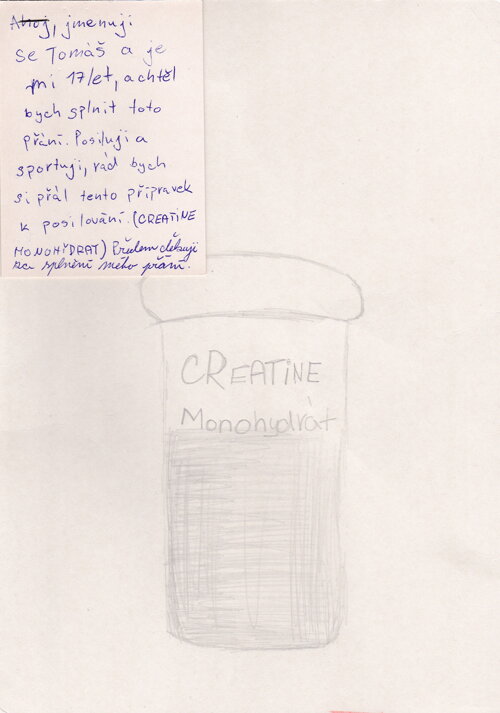 Ahoj, jmenuji
se Tomáš a je
mi 17let, a chtěl
bych splnit toto
přání. Posiluji a
sportuji, rád bych
si přál tento přípravek
k posilování. (CREATINE
MONOHYDRÁT) Předem děkuji
za splnění mého přání.
CREATINE
Monohydrát